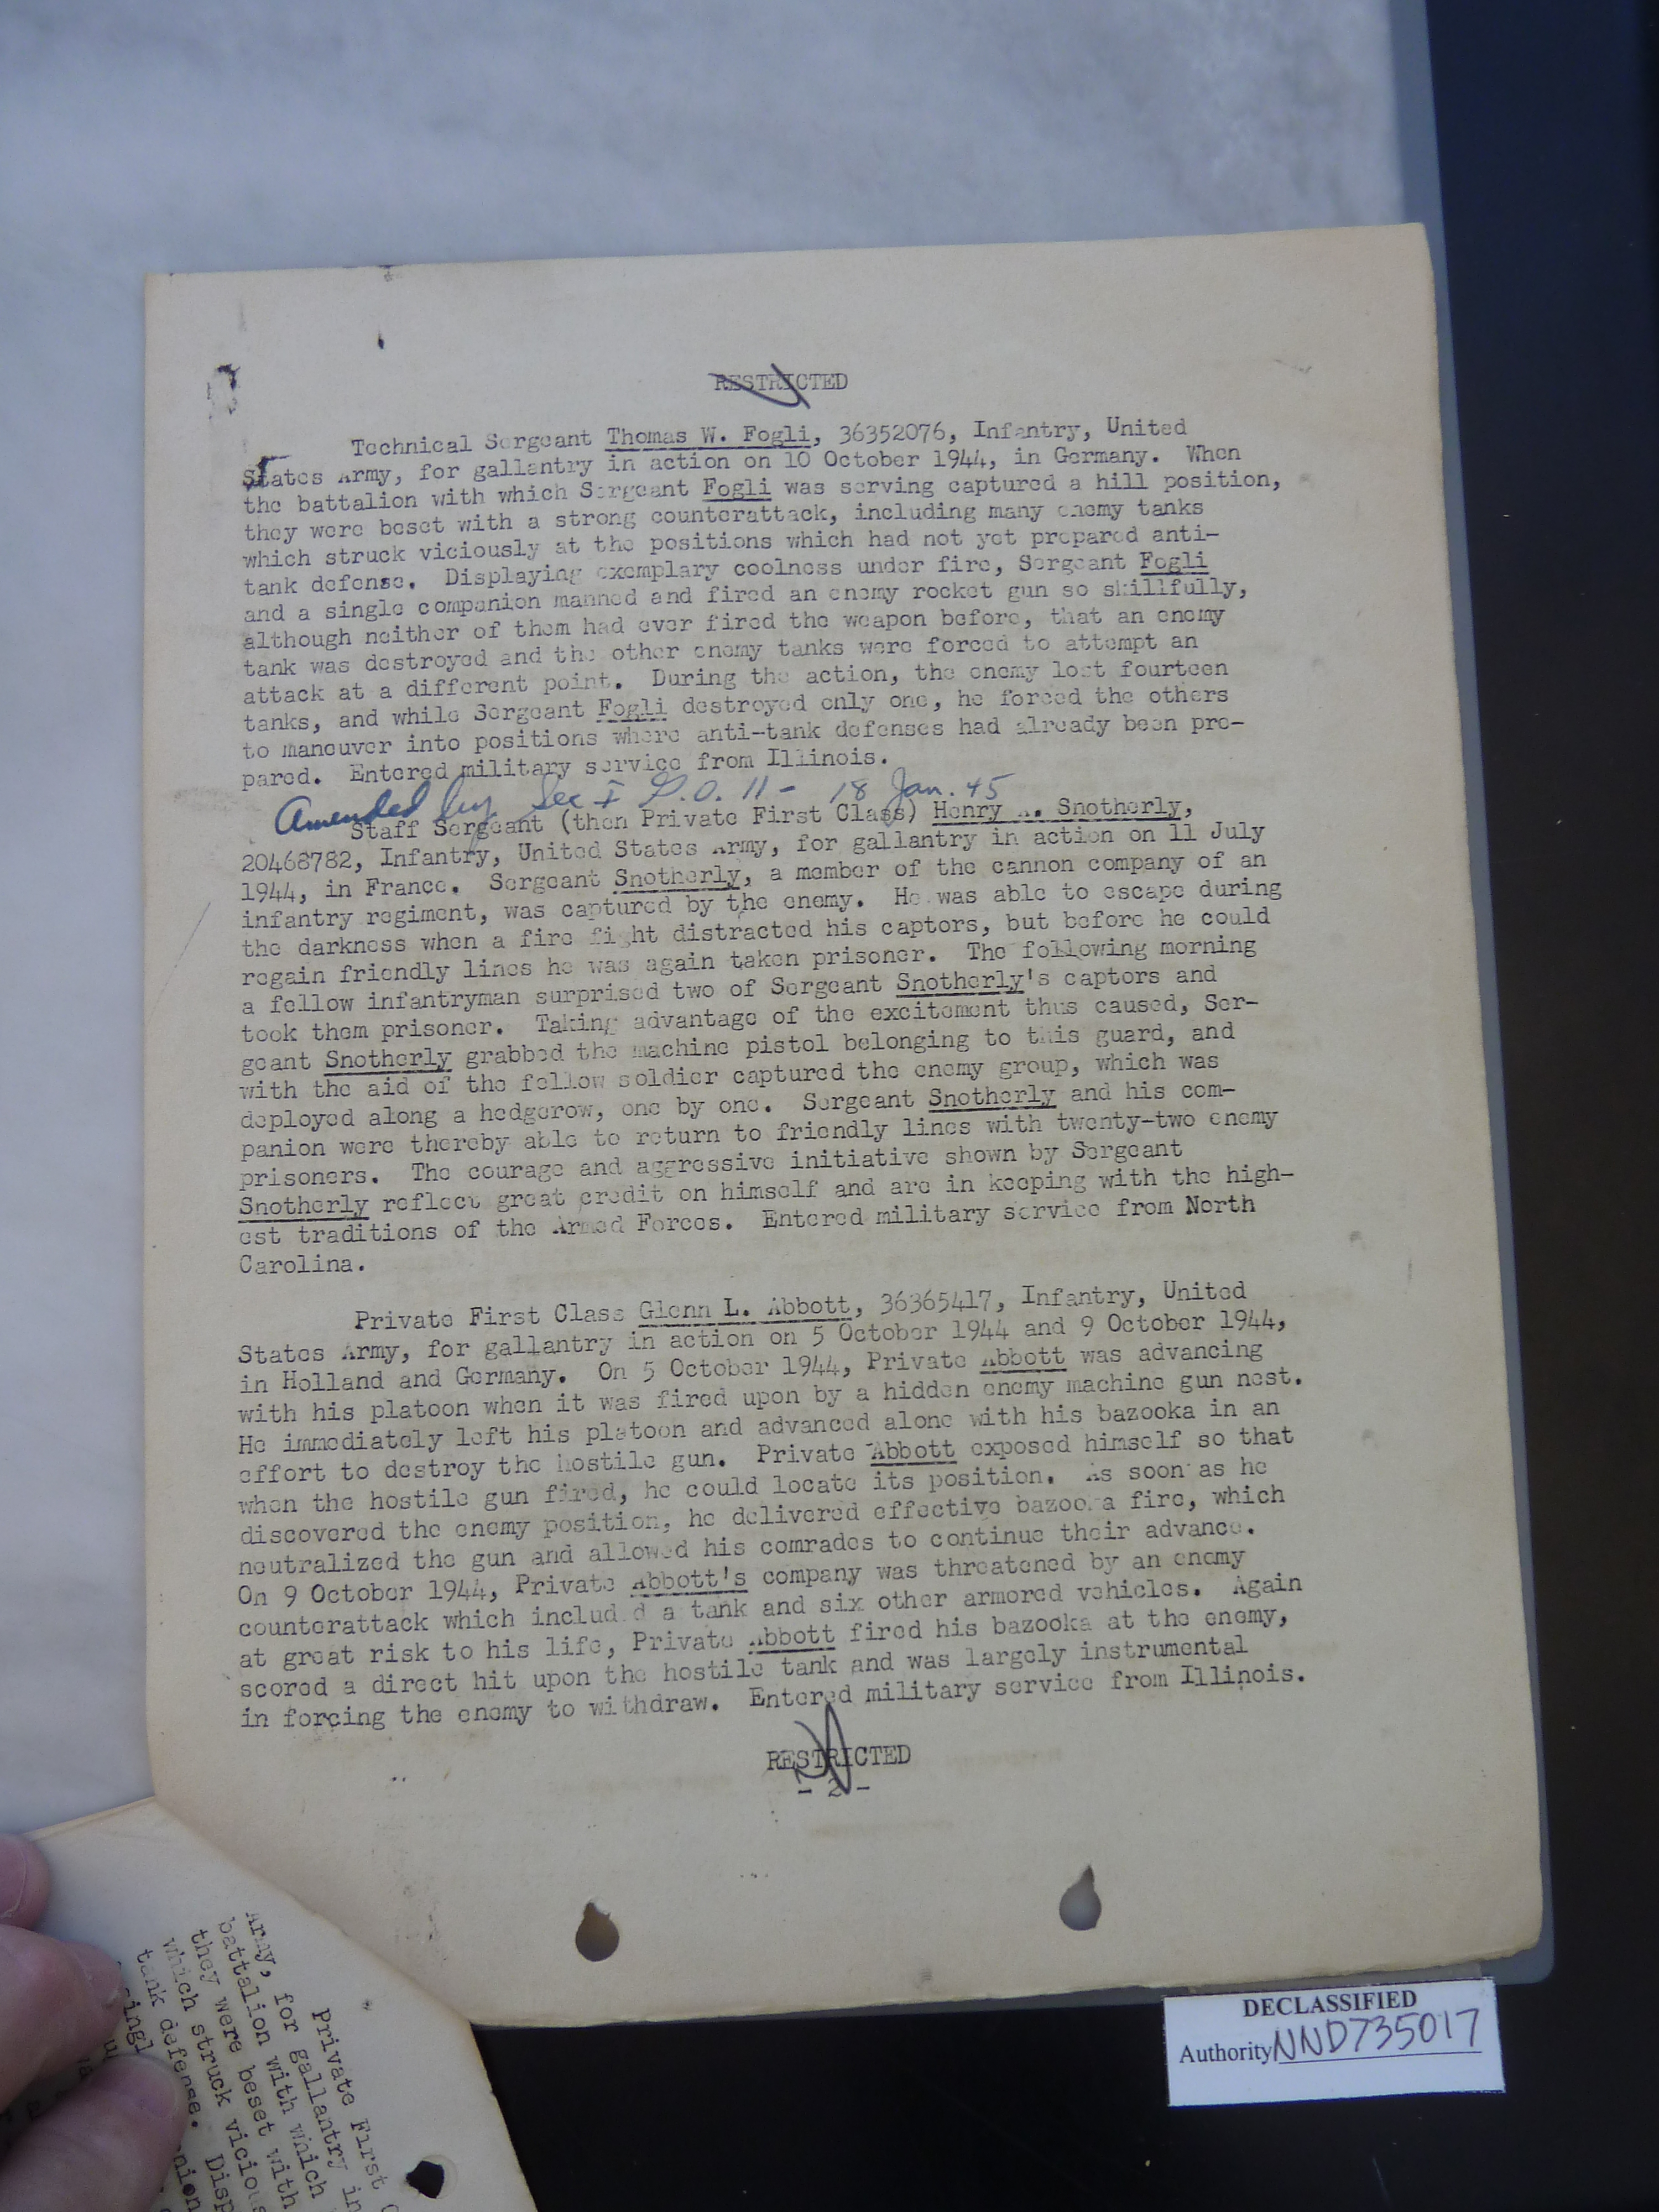 RESTRICTED
Technical Sergeant Thomas W. Fogli, 36352076, Infantry, United
States Army, for gallantry in action on 10 October 1944, in Germany. When
the battalion with which Sergeant Fogli was serving captured a hill position,
they were beset with a strong counterattack, including many enemy tanks
which struck viciously at the positions which had not yet prepared anti-
tank defense. Displaying exemplary coolness under fire, Sergeant Fogli
and a single companion manned and fired an enemy rocket gun so skillfully,
although neither of them had ever fired the weapon before, that an enemy
tank was destroyed and the other enemy tanks were forced to attempt an
attack at a different point. During the action, the enemy lost fourteen
tanks, and while Sergeant Fogli destroyed only one, he forced the others
to maneuver into positions where anti-tank defenses had already been pre-
pared. Entered military service from Illinois.
Amended by Sec I G.O. 11 - 18 Jan. 45
Staff Sergeant (then Private First Class) Henry A. Snotherly,
20468782, Infantry, United States Army, for gallantry in action on 11 July
1944, in France. Sergeant Snotherly, a member of the cannon company of an
infantry regiment, was captured by the enemy. He was able to escape during
the darkness when a fire fight distracted his captors, but before he could
regain friendly lines he was again taken prisoner. The following morning
a fellow infantryman surprised two of Sergeant Snotherly's captors and
took them prisoner. Taking advantage of the excitement thus caused, Ser-
geant Snotherly grabbed the machine pistol belonging to this guard, and
with the aid of the fellow soldier captured the enemy group, which was
deployed along a hedgerow, one by one. Sergeant Snotherly and his com-
panion were thereby able to return to friendly lines with twenty-two enemy
prisoners. The courage and aggressive initiative shown by Sergeant
Snotherly reflect great credit on himself and are in keeping with the high-
est traditions of the Armed Forces. Entered military service from North
Carolina.
Private First Class Glenn L. Abbott, 36365417, Infantry, United
States Army, for gallantry in action on 5 October 1944 and 9 October 1944,
in Holland and Germany. On 5 October 1944, Private Abbott was advancing
with his platoon when it was fired upon by a hidden enemy machine gun nest.
He immediately left his platoon and advanced alone with his bazooka in an
effort to destroy the hostile gun. Private Abbott exposed himself so that
when the hostile gun fired, he could locate its position. As soon as he
discovered the enemy position, he delivered effective bazooka fire, which
neutralized the gun and allowed his comrades to continue their advance.
On 9 October 1944, Private Abbott's company was threatened by an enemy
counterattack which included a tank and six other armored vehicles. Again
at great risk to his life, Private Abbott fired his bazooka at the enemy,
scored a direct hit upon the hostile tank and was largely instrumental
in forcing the enemy to withdraw. Entered military service from Illinois.
RESTRICTED
- 2 -
DECLASSIFIED
Authority NND735017
Private First
Army, for gallantry in
battalion with which
they were beset with
which struck vicious
tank defense. Disp